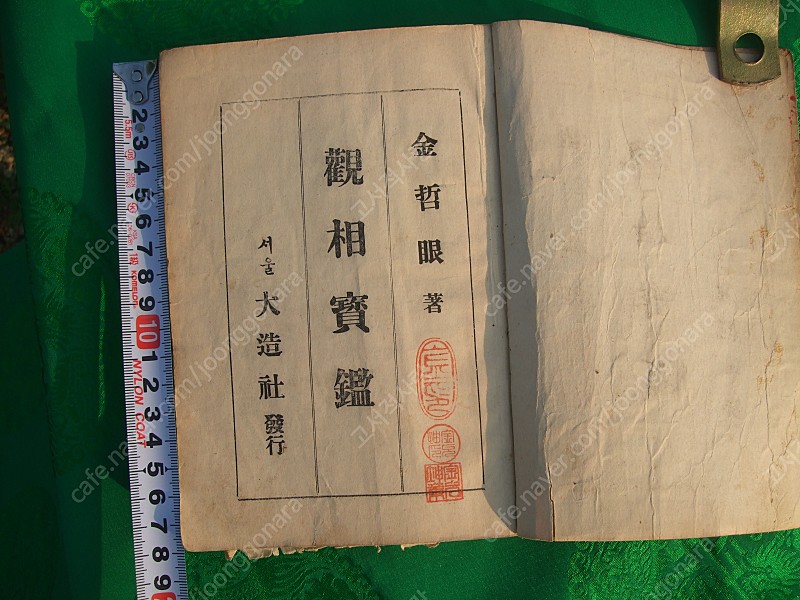 金哲眼 著
觀相寶鑑
서울 大造社 發行
2
3
4
5
6
7
8
9
10
1
2
3
4
5
6
7
8
9
5.5m
KOMELON
NYLON COAT
cafe.naver.com/joonggonara